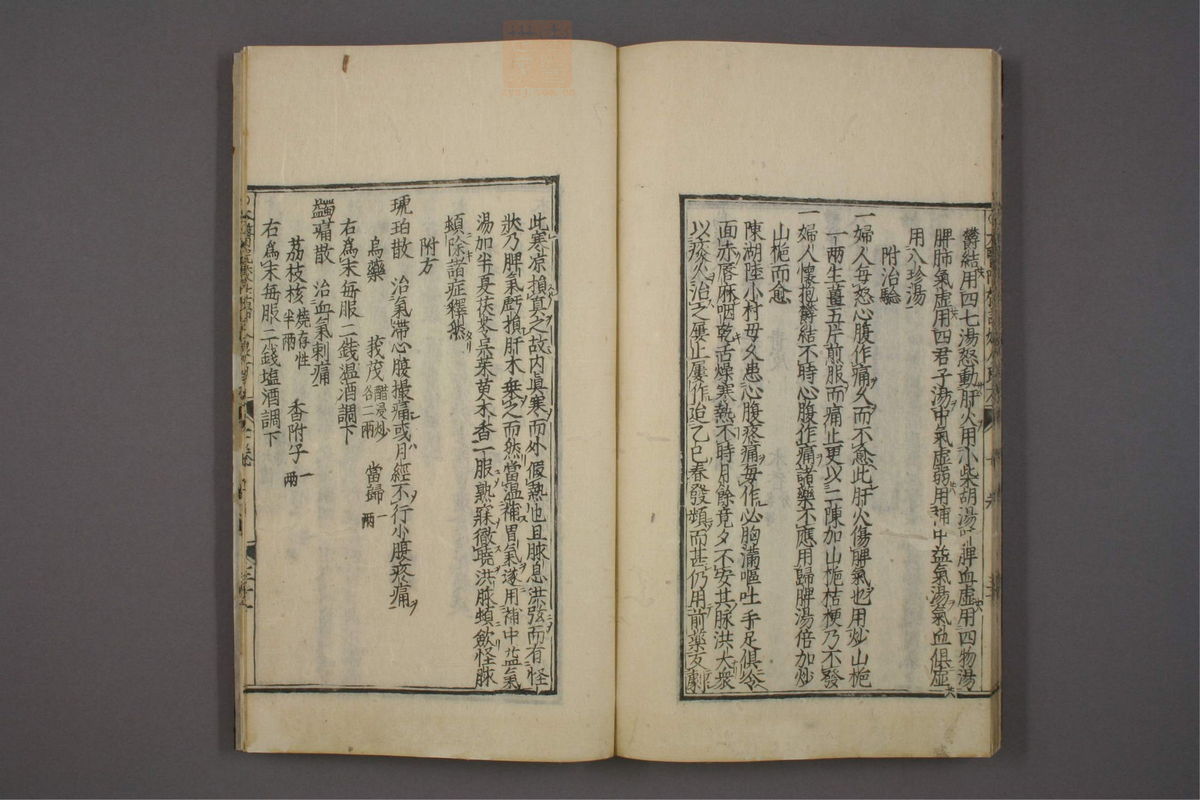 鬱結用四七湯怒動肝火用小柴胡湯脾血虛用四物湯
脾肺氣虛用四君子湯中氣虛弱用補中益氣湯氣血俱虛
用八珍湯
附治驗
一婦人每怒心腹作痛久而不愈此肝火傷脾氣也用炒山梔
一兩生薑五片煎服而痛止更以二陳加山梔桔梗乃不發
一婦人懷抱鬱結不時心腹作痛諸藥不應用歸脾湯倍加炒
山梔而愈
陳湖陸小村母久患心腹疼痛每作必胸滿嘔吐手足俱冷
面赤唇麻咽乾舌燥寒熱不時月餘竟夕不安其脉洪大衆
以痰火治之屢止屢作迨乙巳春發頻而甚仍用前藥反劇
此寒凉損真之故內眞寒而外假熱也且脉息洪弦而有怪
狀乃脾氣虧損肝木乗之而然當温補胃氣遂用補中益氣
湯加半夏茯苓吳茱萸木香一服熟寐徹曉洪脉頓歛怪脉
頓除諸症釋然
附方
琥珀散 治氣滯心腹撮痛或月經不行小腹疼痛
烏藥 莪茂醋浸炒各二兩 當歸一兩
右爲末每服二錢温酒調下
蠲痛散 治血氣刺痛
荔枝核燒存性半兩 香附子一兩
右爲末每服二錢塩酒調下